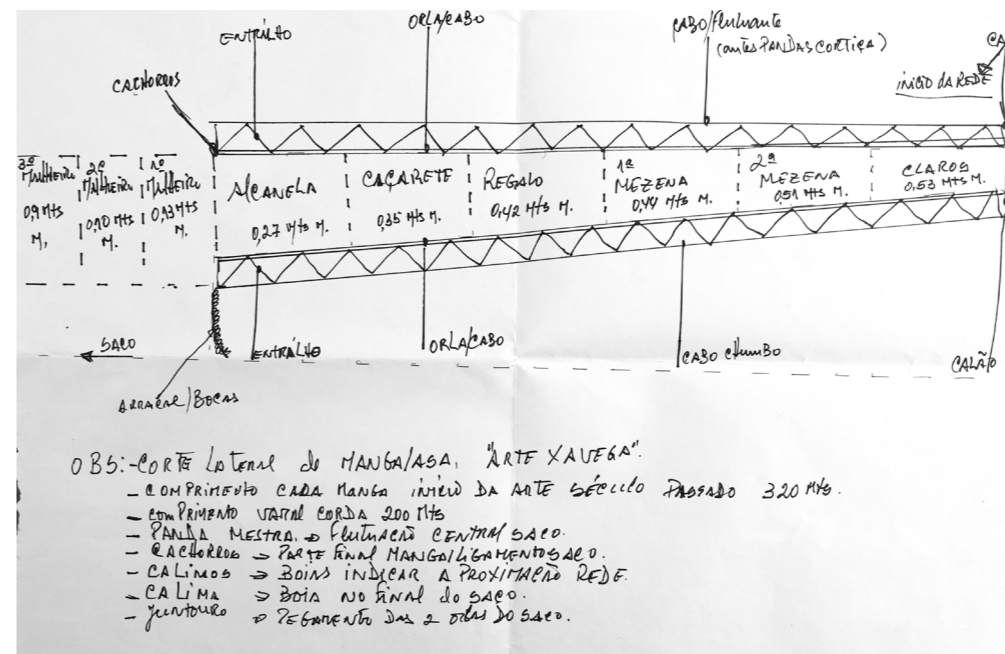 ENTRALHO
ORLA/CABO
CABO/Flutuante
(antes PANDAS CORTIÇA)
CA
INÍCIO DA REDE
CACHORROS
3º MALHEIRO 0,9 MTS M.
2º MALHEIRO 0,90 MTS M.
1º MALHEIRO 0,93 MTS M.
ALCANELA 0,27 MTS M.
CAÇARETE 0,35 MTS M.
REGALO 0,42 MTS M.
1ª MEZENA 0,44 MTS M.
2ª MEZENA 0,51 MTS M.
CLAROS 0,53 MTS M.
SACO
ENTRALHO
ORLA/CABO
CABO CHUMBO
CALÃO
ARRACAL/BOCAS
OBS:-CORTE LATERAL de MANGA/ASA, "ARTE XAVEGA".
- COMPRIMENTO CADA MANGA INÍCIO DA ARTE SÉCULO PASSADO 320 MTS.
- COMPRIMENTO VARAL CORDA 200 MTS
- PANDA MESTRA. => FLUTUAÇÃO CENTRAL SACO.
- CACHORROS => PARTE FINAL MANGA/LIGAMENTO SACO.
- CALIMOS => BOIAS INDICAR APROXIMAÇÃO REDE.
- CALIMA => BOIA NO FINAL do SACO.
- JUNTOURO => PEGAMENTO DAS 2 DO SACO.